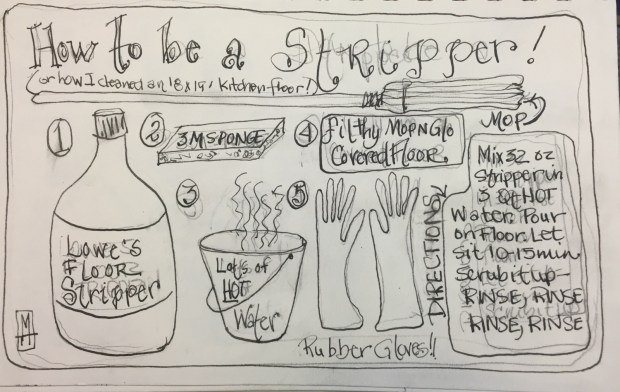 How to be a Stripper!
(or how I cleaned an 18 x 19' kitchen floor!)
MOP
1
2
3M SPONGE
3
Lots of
HOT
Water
4
filthy Mop N Glo
Covered Floor.
5
Rubber Gloves!!
Lowe's
Floor
Stripper
DIRECTIONS
Mix 32 oz
Stripper in
3 Qt HOT
Water. Pour
on Floor. Let
Sit 10-15 min
Scrub it up-
RINSE, RINSE
RINSE, RINSE
M